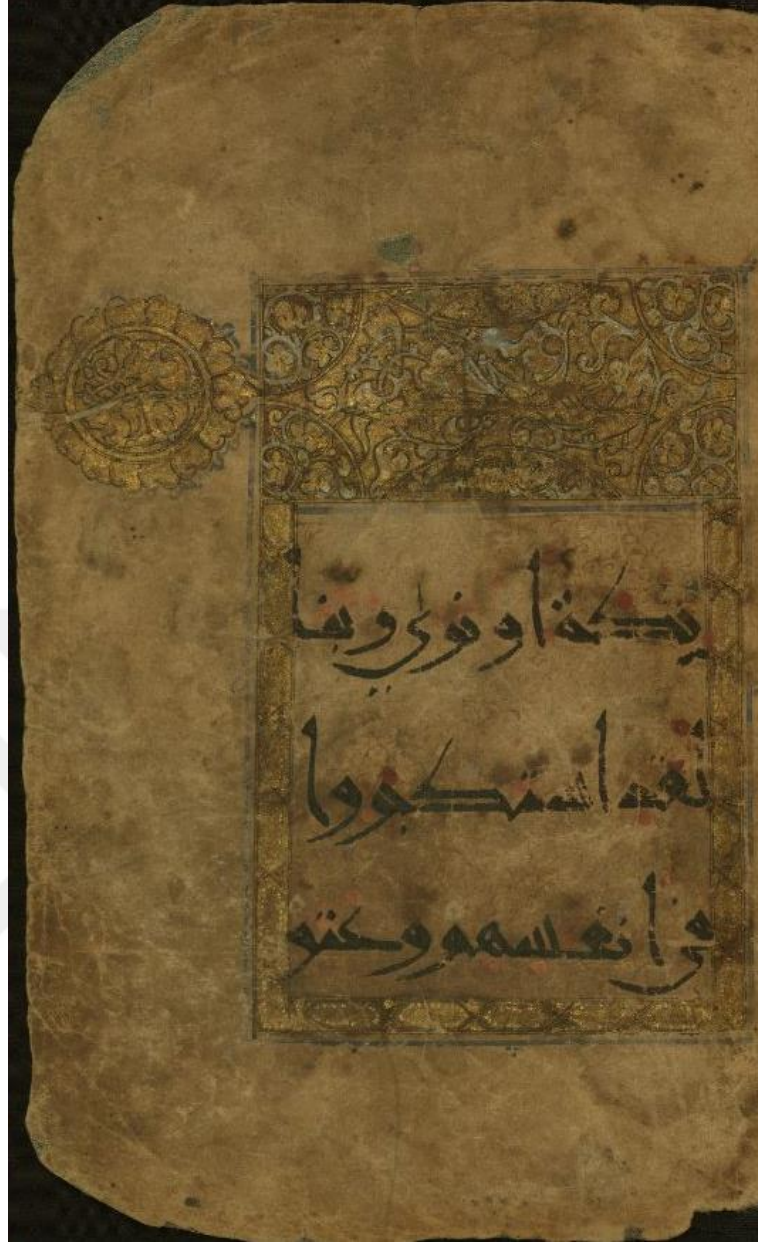 ئكة او نرى ربنا
لقد استكبروا
في انفسهم وعتو